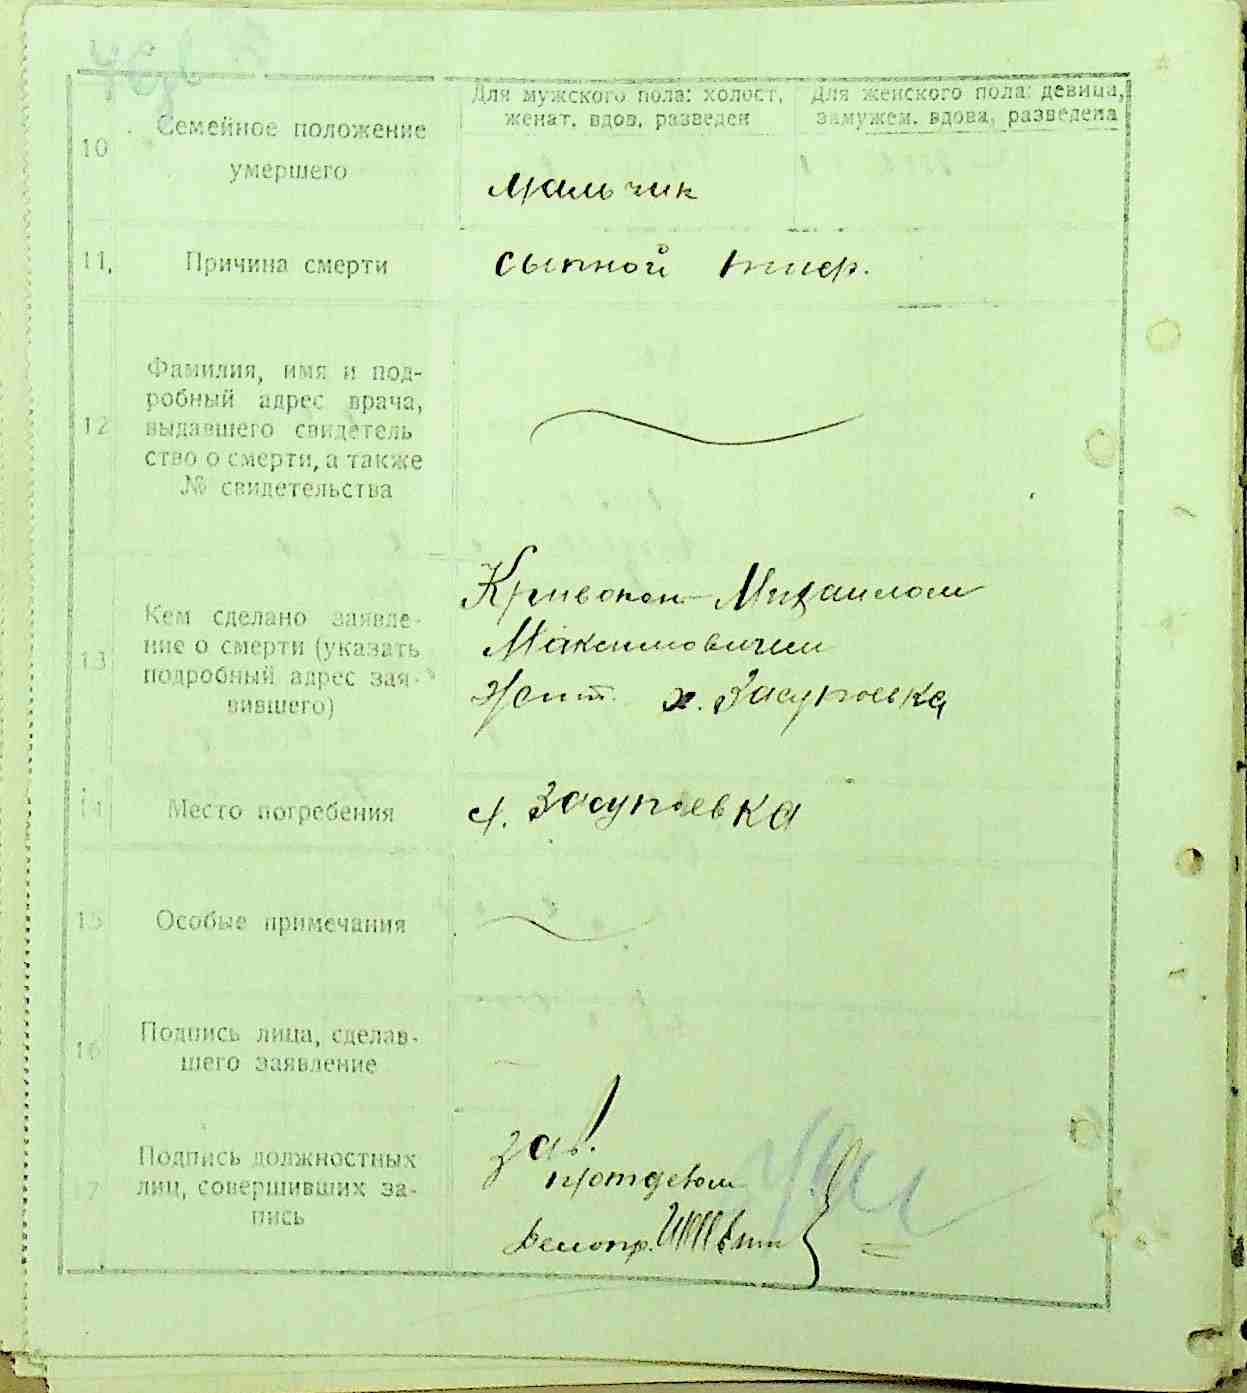 10
Семейное положение
умершего
Для мужского пола: холост,
женат, вдов, разведен
Для женского пола: девица,
замужем, вдова, разведена
мальчик
11,
Причина смерти
сыпной тиф.
12
Фамилия, имя и под-
робный адрес врача,
выдавшего свидетель
ство о смерти, а также
№ свидетельства
13
Кем сделано заявле-
ние о смерти (указать
подробный адрес зая-
вившего)
Михаилом
Максимовичем
Жит. х. Засупоевка
14
Место погребения
х. Засупоевка
15
Особые примечания
16
Подпись лица, сделав-
шего заявление
17
Подпись должностных
лиц, совершивших за-
пись
Зав.
Делопр.